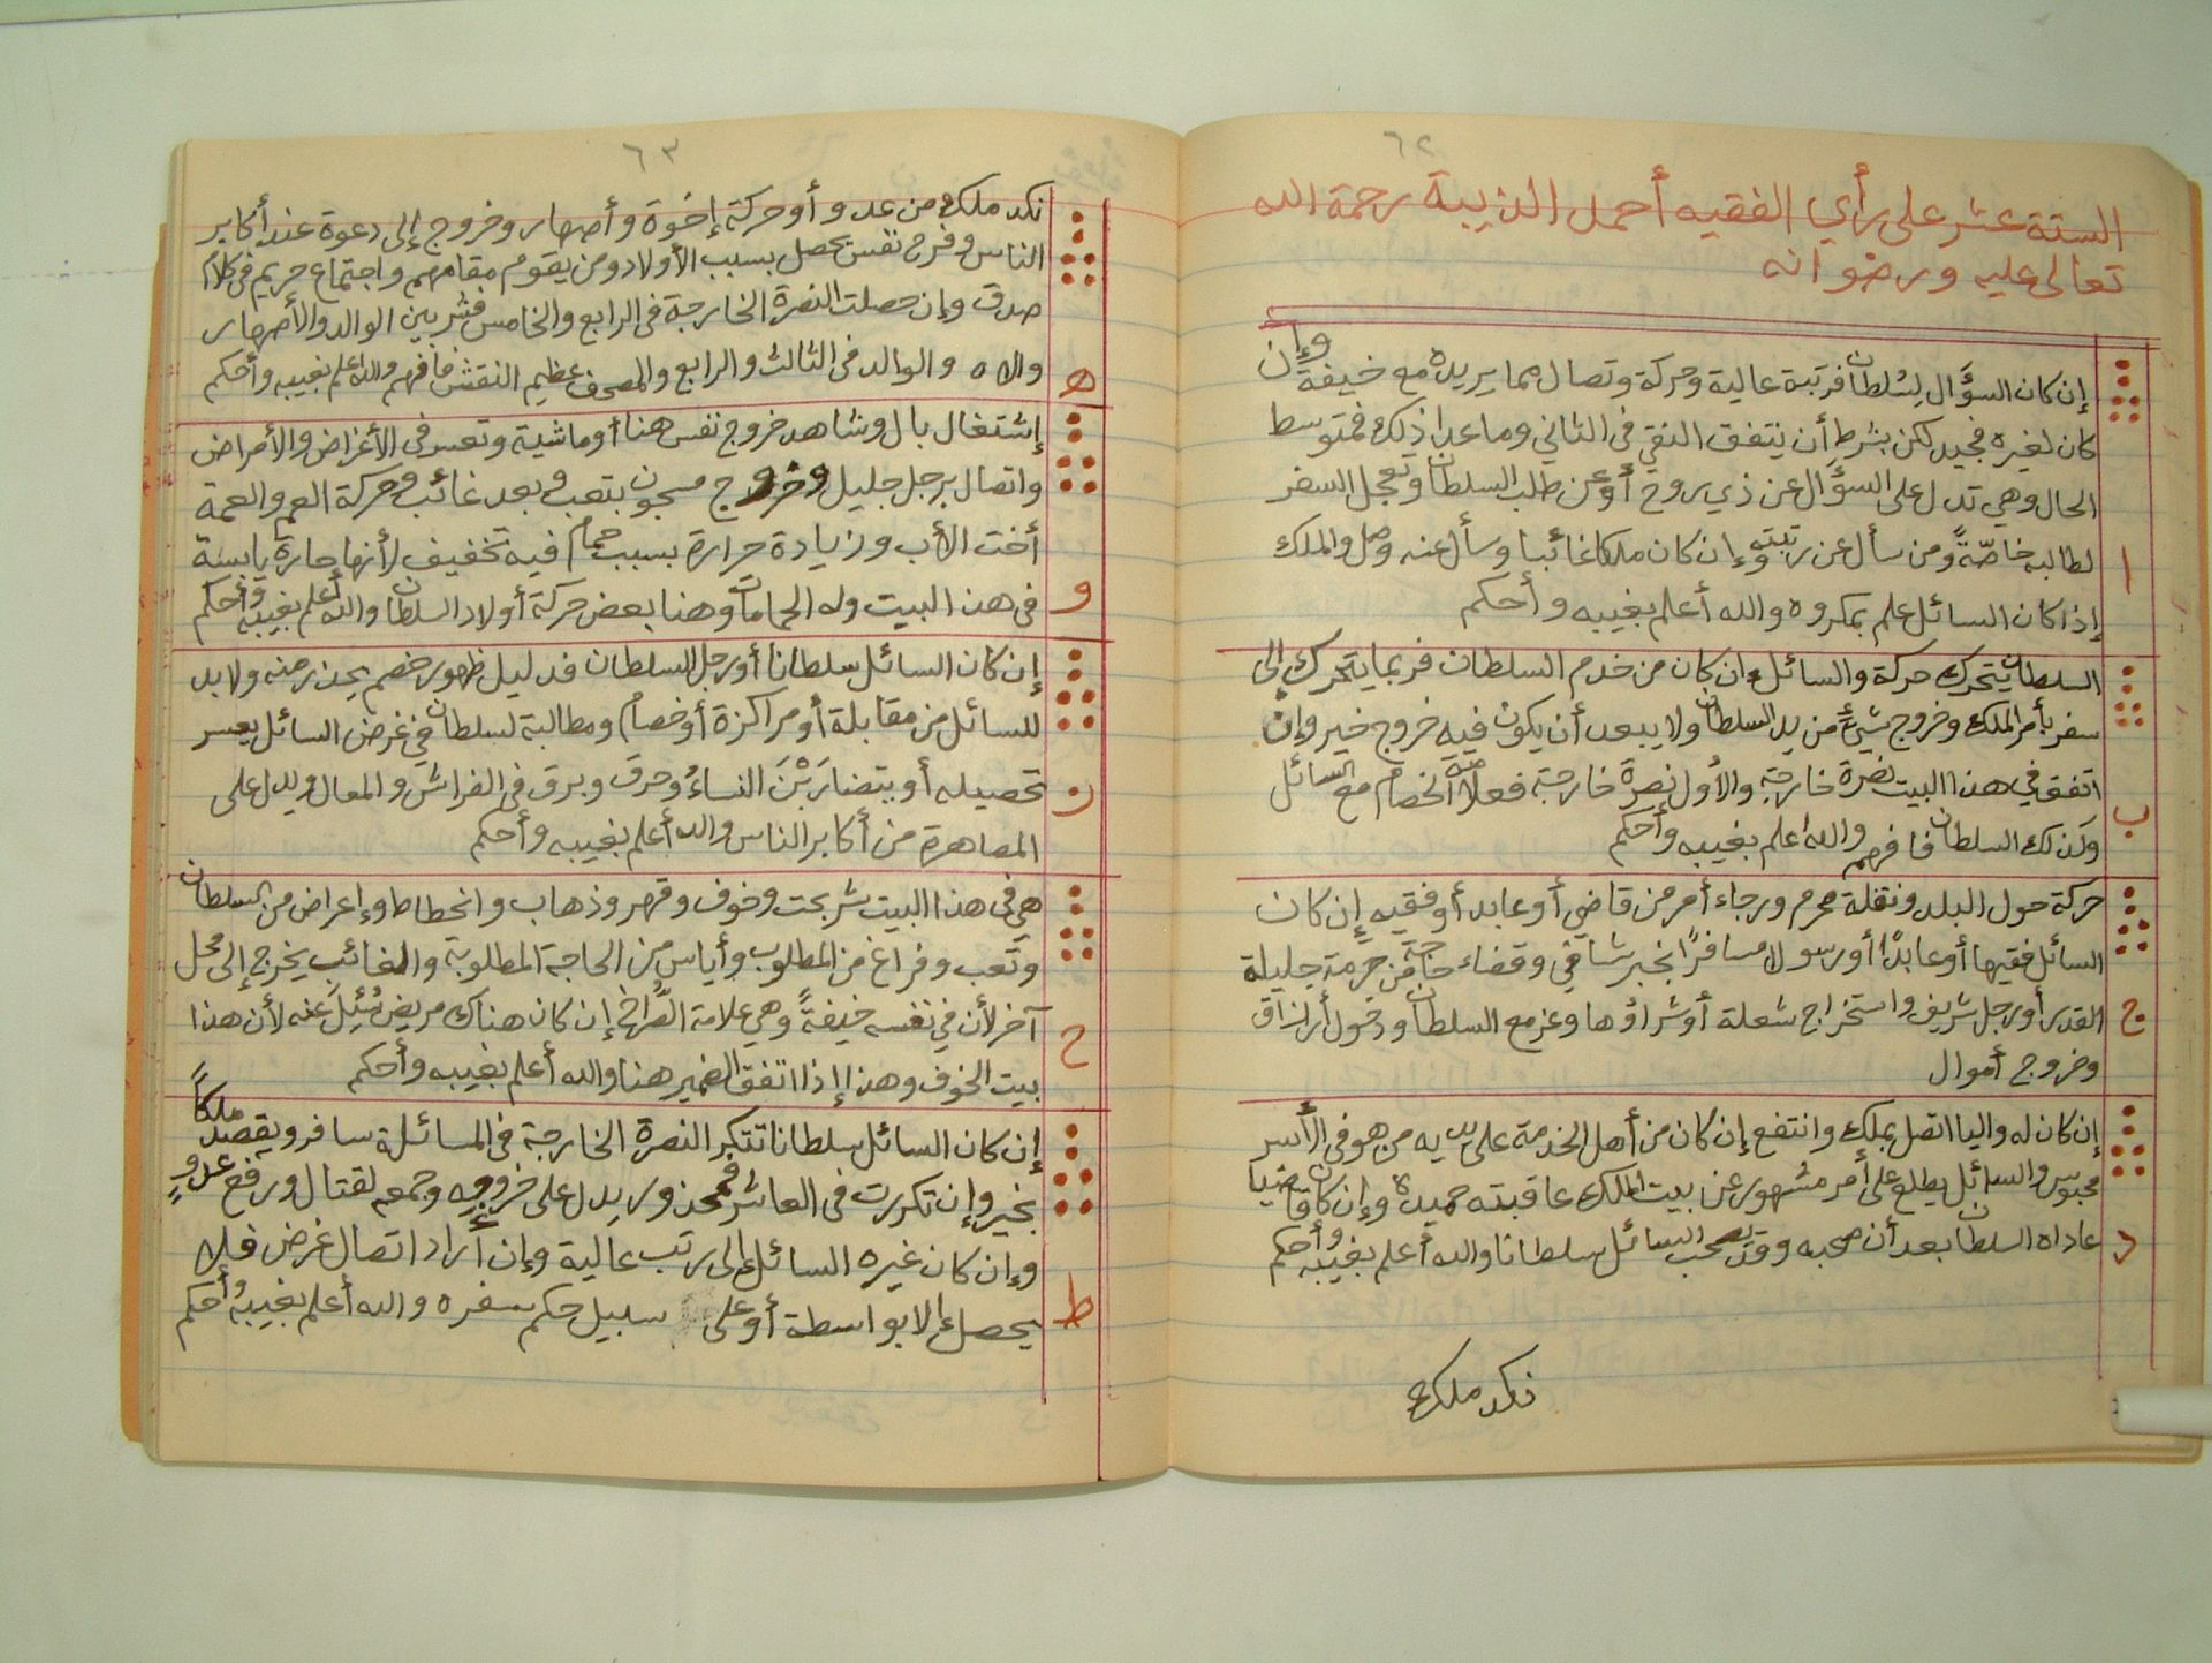 ٦٢
الستة عشر على رأي الفقيه أحمد الذيبة رحمة الله
تعالى عليه ورضوانه
إن كان السؤال لسلطان فرتبة عالية وحركة وتصال مما يريده مع خيفة وإن
كان لغيره فجيد لكن بشرط أن يتفق النقي في الثاني وما عدا ذلك فمتوسط
الحال وهي تدل على السؤال عن ذي روح أو عن طلب السلطان وتعجل السفر
ا لطالبه خاصةً ومن سأل عن رتبته وإن كان ملكا غائبا وسأل عنه وصل والملك
إذا كان السائل علم بمكروه والله أعلم بغيبه وأحكم
السلطان يتحرك حركة والسائل وإن كان من خدم السلطان فربما يتحرك إلى
سفر بأمر الملك وخروج شيء من يد السلطان ولا يبعد أن يكون فيه خروج خير وإن
اتفق في هذا البيت نصرة خارجة والأول نصرة خارجة فعلامة الخصام مع السائل
ب وكذلك السلطان فافهم والله أعلم بغيبه وأحكم
حركة حول البلد ونقلة محرم ورجاء أمر من قاضي أو عابد أو فقيه إن كان
السائل فقيها أو عابدًا أو رسولا مسافرًا بخبر شافي وقضاء حاجة من حرمة جليلة
ج القدر أو رجل شريف واستخراج شعلة أو شراؤها وعز مع السلطان ودخول أرزاق
وخروج أموال
إن كان له واليا اتصل بملك وانتفع إن كان من أهل الخدمة على يديه من هو في الأسر
محبوس والسائل يطلع على أمر مشهور عن بيت الملك عاقبته حميدة وإن كان قاضيا
د عاداه السلطان بعد أن صحبه وقد يصحب السائل سلطانا والله أعلم بغيبه وأحكم
نكد ملك
٦٣
نكد ملك من عدو أو حركة إخوة وأصهار وخروج إلى دعوة عند أكابر
الناس وفرح نفس يحصل بسبب الأولاد ومن يقوم مقامهم واجتماع حريم في كلام
صدق وإن حصلت النصرة الخارجة في الرابع والخامس فشر بين الوالد والأصهار
ه والاه والوالد في الثالث والرابع والمصحف عظيم النقش فافهم والله أعلم بغيبه وأحكم
إشتغال بال وشاهد خروج نفس هنا أو ماشية وتعسر في الأغراض والأمراض
واتصال برجل جليل وخروج مسجون بتعب وبعد غائب وحركة العم والعمة
أخت الأب وزيادة حرارة بسبب حمام فيه تخفيف لأنها حارة يابسة
و في هذا البيت وله الحمامات وهنا بعض حركة أولاد السلطان والله أعلم بغيبه وأحكم
إن كان السائل سلطانا أو رجل السلطان فدليل ظهور خصم يحذر منه ولا بد
للسائل من مقابلة أو مراكزة أو خصام ومطالبة لسلطان في غرض السائل يعسر
ز تحصيله أو يتضاربْنَ النساءُ وحرق وبرق في الفراش والمعال ويدل على
المصاهرة من أكابر الناس والله أعلم بغيبه وأحكم
هي في هذا البيت شر بحت وخوف وقهر وذهاب وانحطاط وإعراض من السلطان
وتعب وفراغ من المطلوب وأياس من الحاجة المطلوبة والغائب يخرج إلى محل
ح آخر لأن في نفسه خيفةً وهي علامة الصُراخ إن كان هناك مريض سُئِلَ عنه لأن هذا
بيت الخوف وهذا إذا اتفق الضمير هنا والله أعلم بغيبه وأحكم
إن كان السائل سلطانا تتكر النصرة الخارجة في المسائلة سافر ويقصد ملكاً
بخير وإن تكررت في العاشر فمحذور يدل على خروجه وجمعه لقتال ورفع عدوٍ
وإن كان غيره السائل إلى رتب عالية وإن أراد اتصال غرض فلا
ط يحصل إلا بواسطة أو على سبيل حكم سفره والله أعلم بغيبه وأحكم